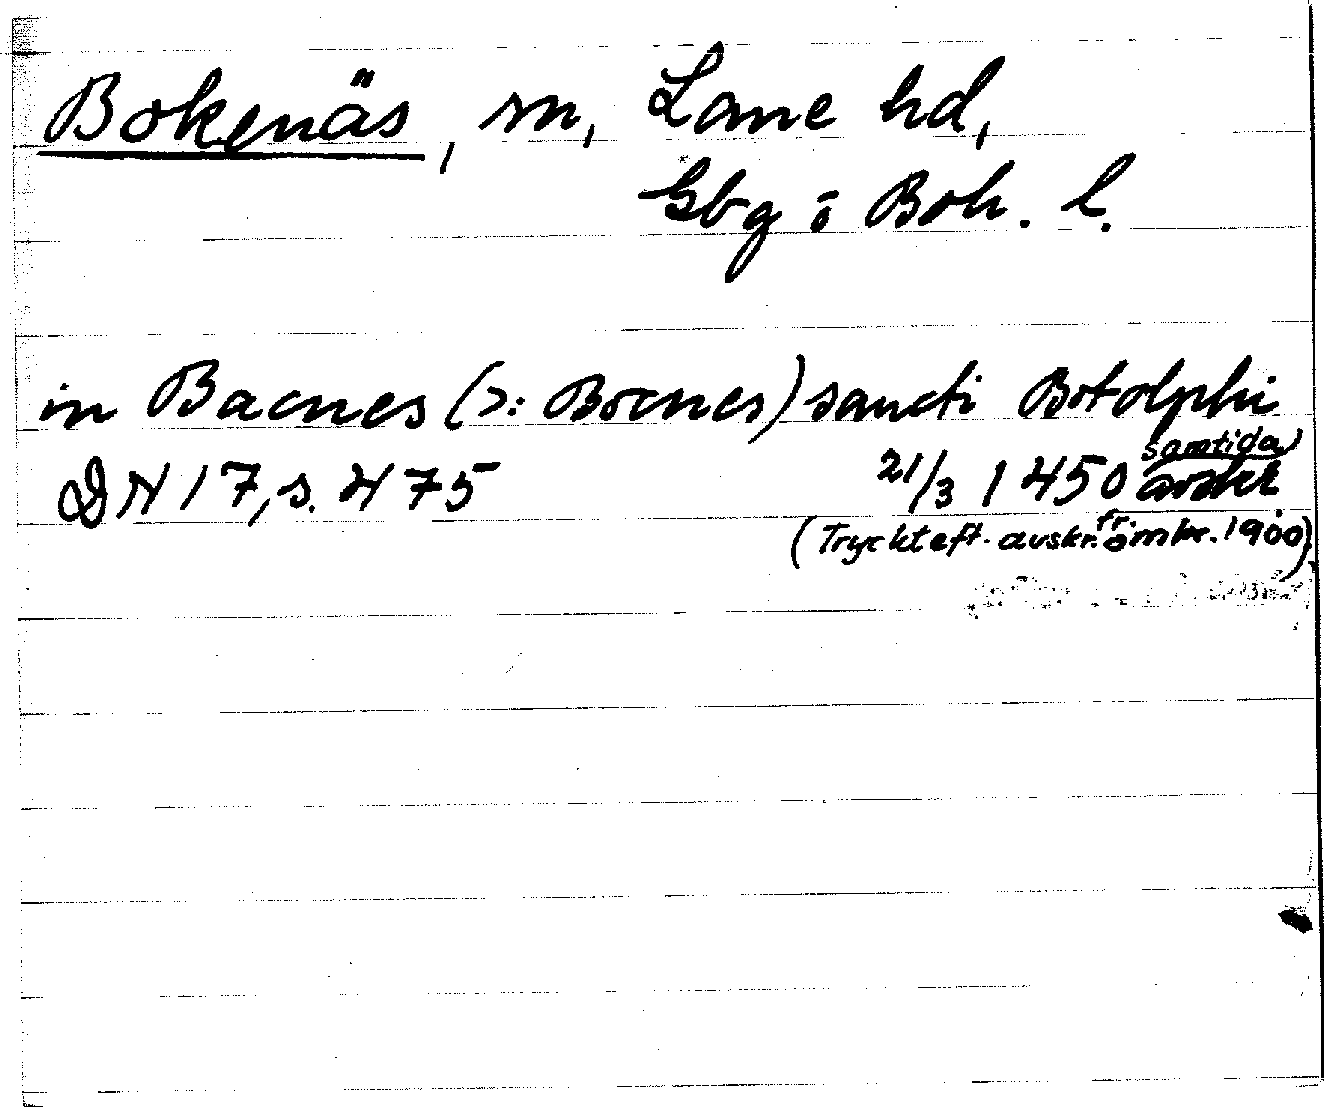 Bokenäs, sn, Lane hd,
Gbg o Boh. l.
in Bacnes (ɔ: Bocnes) sancti Botolphi
DN 17, s. 475 21/3 1450 samtida avskr
(Tryckt eft. avskr. fr. omkr. 1900)